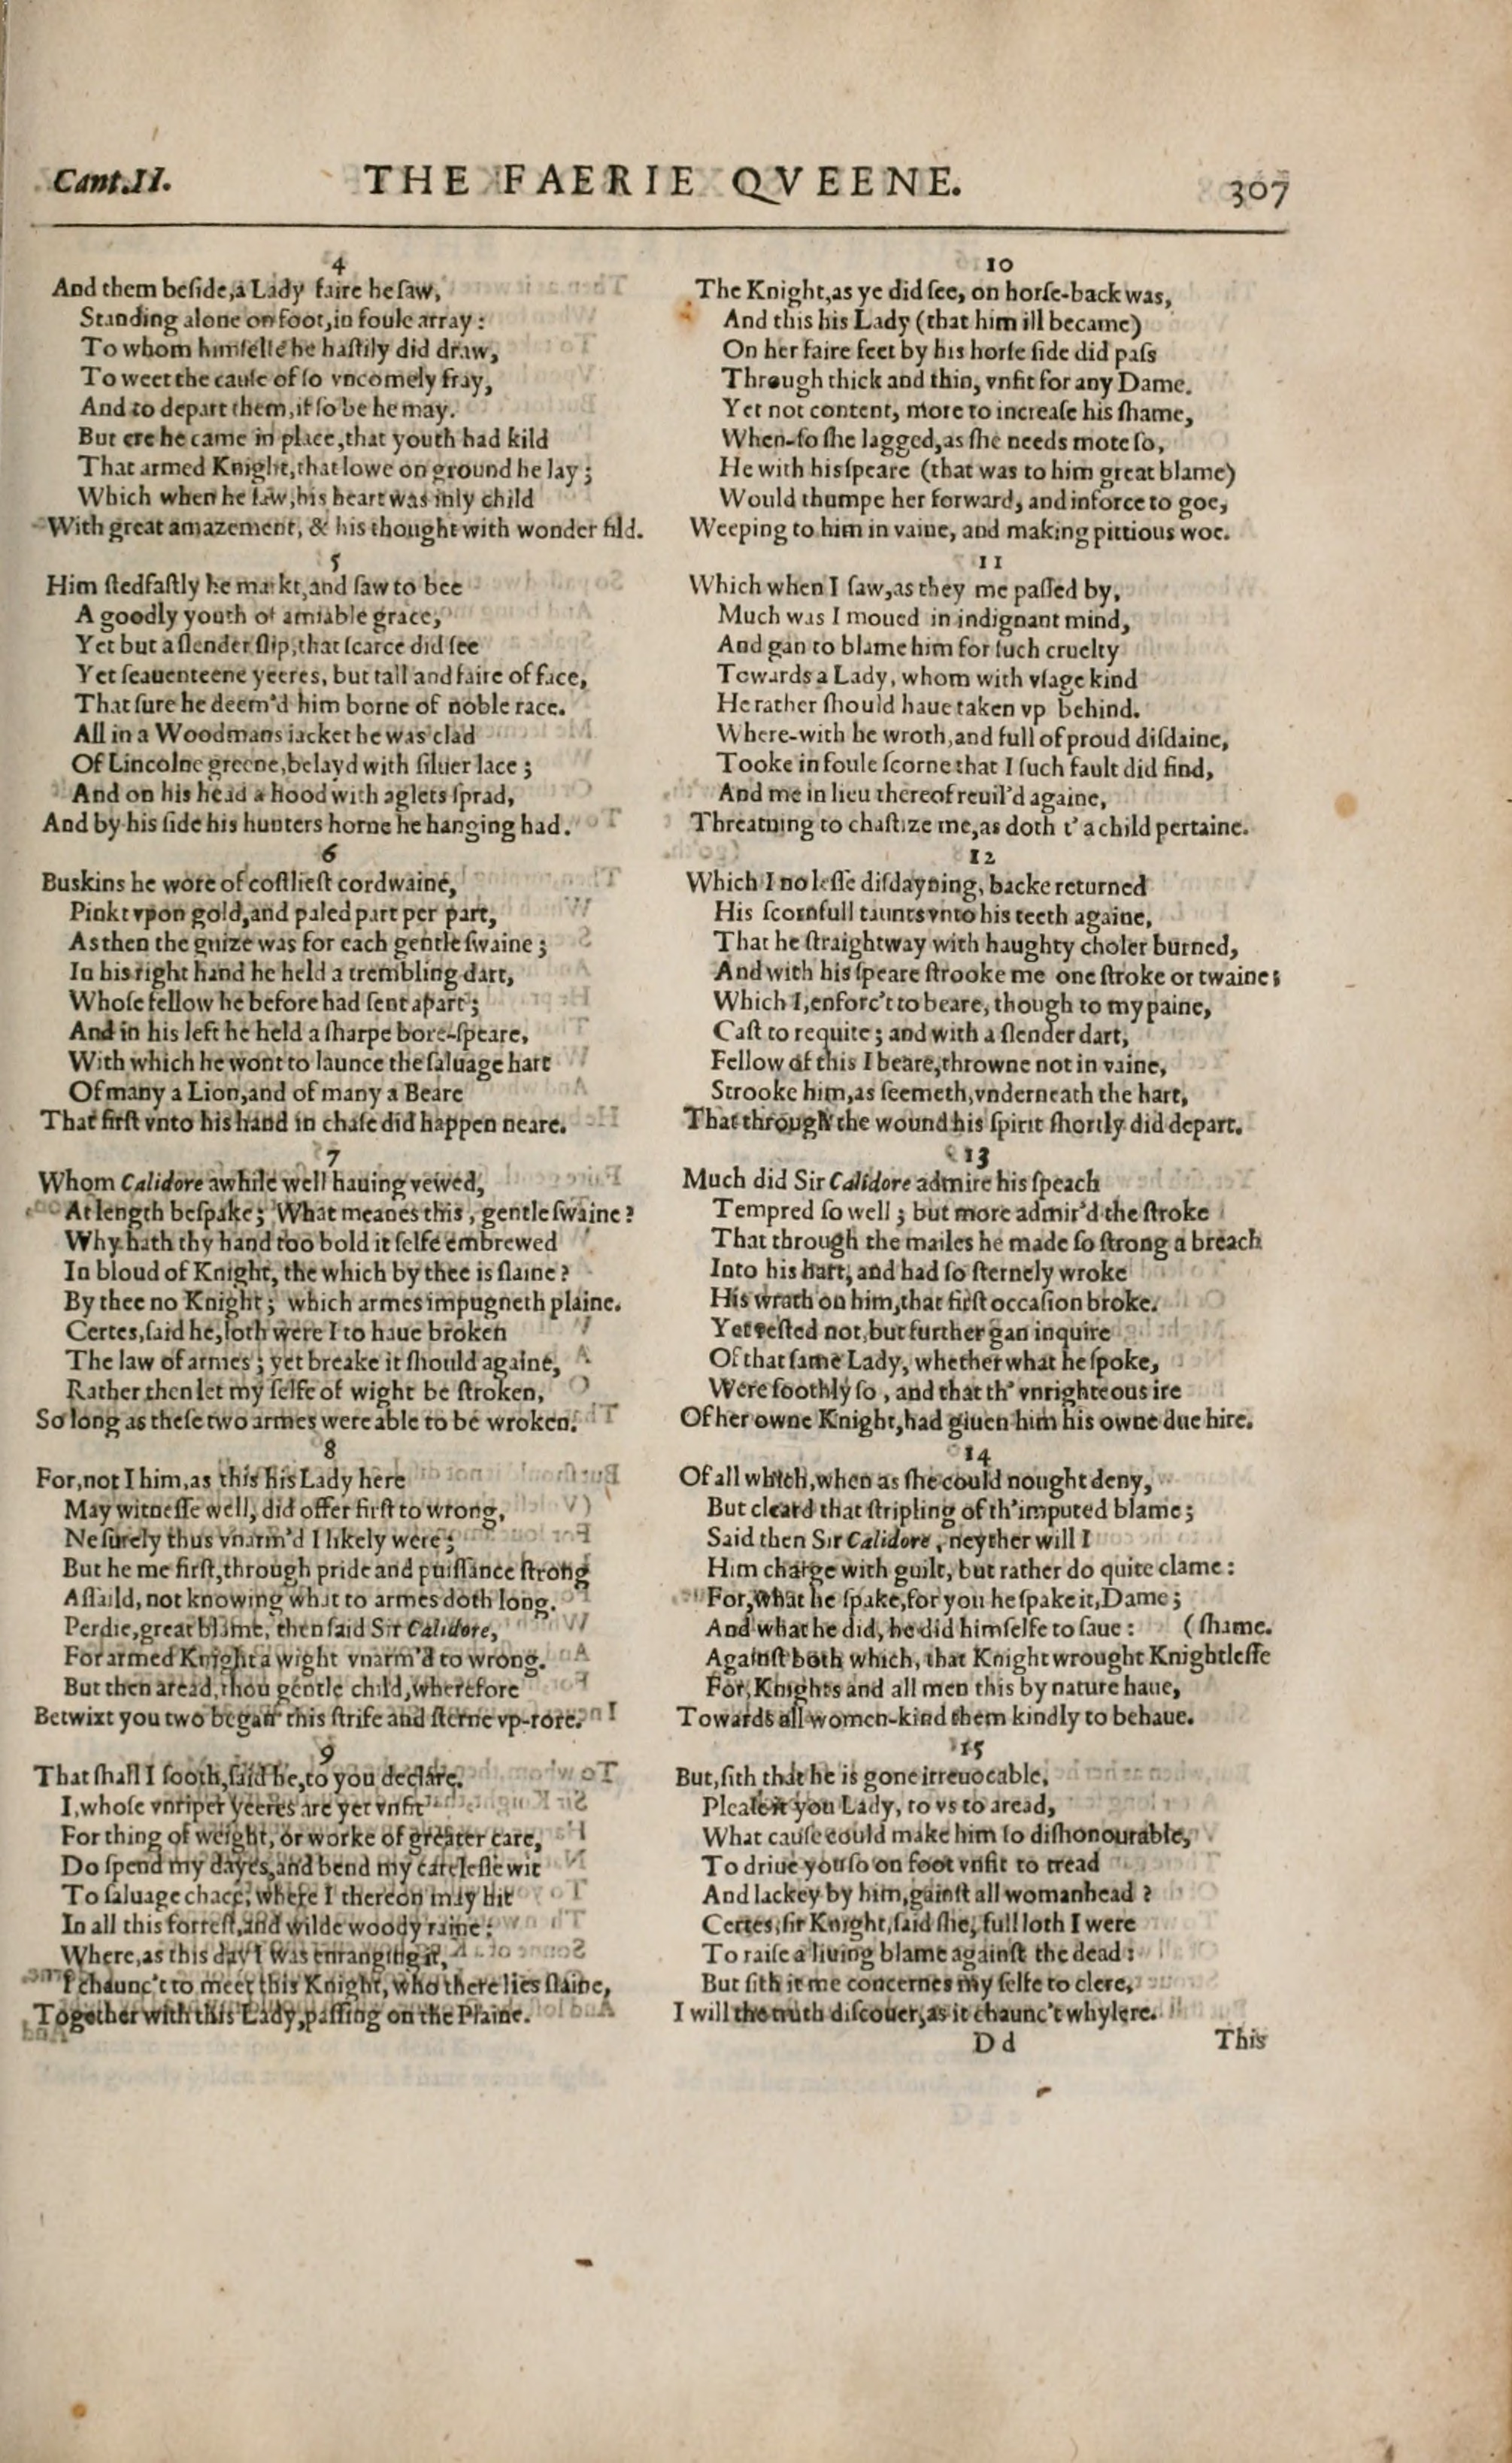 Cant.II. THE FAERIE QVEENE. 307
4
And them beſide, a Lady faire he ſaw,
Standing alone on foot, in foule array:
To whom himſelfe he haſtily did draw,
To weet the cauſe of ſo vncomely fray,
And to depart them, if ſo be he may.
But ere he came in place, that youth had kild
That armed Knight, that lowe on ground he lay;
Which when he ſaw, his heart was inly child
With great amazement, & his thought with wonder fild.
5
Him ſtedfaſtly he markt, and ſaw to bee
A goodly youth of amiable grace,
Yet but a ſlender ſlip, that ſcarce did ſee
Yet ſeauenteene yeeres, but tall and faire of face,
That ſure he deem'd him borne of noble race.
All in a Woodmans iacket he was clad
Of Lincolne greene, belayd with ſiluer lace;
And on his head a hood with aglets ſprad,
And by his ſide his hunters horne he hanging had.
6
Buskins he wore of coſtlieſt cordwaine,
Pinkt vpon gold, and paled part per part,
As then the guize was for each gentle ſwaine;
In his right hand he held a trembling dart,
Whoſe fellow he before had ſent apart;
And in his left he held a ſharpe bore-ſpeare,
With which he wont to launce the ſaluage hart
Of many a Lion, and of many a Beare
That firſt vnto his hand in chaſe did happen neare.
7
Whom Calidore awhile well hauing vewed,
At length beſpake; What meanes this, gentle ſwaine?
Why hath thy hand too bold it ſelfe embrewed
In bloud of Knight, the which by thee is ſlaine?
By thee no Knight; which armes impugneth plaine.
Certes, ſaid he, loth were I to haue broken
The law of armes; yet breake it ſhould againe,
Rather then let my ſelfe of wight be ſtroken,
So long as theſe two armes were able to be wroken.
8
For, not I him, as this his Lady here
May witneſſe well, did offer firſt to wrong,
Ne ſurely thus vnarm'd I likely were;
But he me firſt, through pride and puiſſance ſtrong
Aſſaild, not knowing what to armes doth long.
Perdie, great blame, then ſaid Sir Calidore,
For armed Knight a wight vnarm'd to wrong.
But then aread, thou gentle child, wherefore
Betwixt you two began this ſtrife and ſterne vp-rore.
9
That ſhall I ſooth, ſaid he, to you declare.
I, whoſe vnriper yeeres are yet vnfit
For thing of weight, or worke of greater care,
Do ſpend my dayes, and bend my careleſſe wit
To ſaluage chace, where I thereon may hit
In all this forreſt, and wilde woody raine:
Where, as this day I was enranging it,
I chaunc't to meet this Knight, who there lies ſlaine,
Together with this Lady, paſſing on the Plaine.
10
The Knight, as ye did ſee, on horſe-back was,
And this his Lady (that him ill became)
On her faire feet by his horſe ſide did paſs
Through thick and thin, vnfit for any Dame.
Yet not content, more to increaſe his ſhame,
When-ſo ſhe lagged, as ſhe needs mote ſo,
He with his ſpeare (that was to him great blame)
Would thumpe her forward, and inforce to goe,
Weeping to him in vaine, and making pittious woe.
11
Which when I ſaw, as they me paſſed by,
Much was I moued in indignant mind,
And gan to blame him for ſuch cruelty
Towards a Lady, whom with vſage kind
He rather ſhould haue taken vp behind.
Where-with he wroth, and full of proud diſdaine,
Tooke in foule ſcorne that I ſuch fault did find,
And me in lieu thereof reuil'd againe,
Threatning to chaſtize me, as doth t' a child pertaine.
12
Which I no leſſe diſdayning, backe returned
His ſcornfull taunts vnto his teeth againe,
That he ſtraightway with haughty choler burned,
And with his ſpeare ſtrooke me one ſtroke or twaine;
Which I, enforc't to beare, though to my paine,
Caſt to requite; and with a ſlender dart,
Fellow of this I beare, throwne not in vaine,
Strooke him, as ſeemeth, vnderneath the hart,
That through the wound his ſpirit ſhortly did depart.
13
Much did Sir Calidore admire his ſpeach
Tempred ſo well; but more admir'd the ſtroke
That through the mailes he made ſo ſtrong a breach
Into his hart, and had ſo ſternely wroke
His wrath on him, that firſt occaſion broke.
Yet reſted not, but further gan inquire
Of that ſame Lady, whether what he ſpoke,
Were ſoothly ſo, and that th' vnrighteous ire
Of her owne Knight, had giuen him his owne due hire.
14
Of all which, when as ſhe could nought deny,
But cleard that ſtripling of th' imputed blame;
Said then Sir Calidore, neyther will I
Him charge with guilt, but rather do quite clame:
For, what he ſpake, for you he ſpake it, Dame;
And what he did, he did himſelfe to ſaue: (ſhame.
Againſt both which, that Knight wrought Knightleſſe
For, Knights and all men this by nature haue,
Towards all women-kind them kindly to behaue.
15
But, ſith that he is gone irreuocable,
Pleaſe it you Lady, to vs to aread,
What cauſe could make him ſo diſhonourable,
To driue you ſo on foot vnfit to tread
And lackey by him, gainſt all womanhead?
Certes, ſir Knight, ſaid ſhe, full loth I were
To raiſe a liuing blame againſt the dead:
But ſith it me concernes my ſelfe to clere,
I will the truth diſcouer, as it chaunc't whylere.
D d This